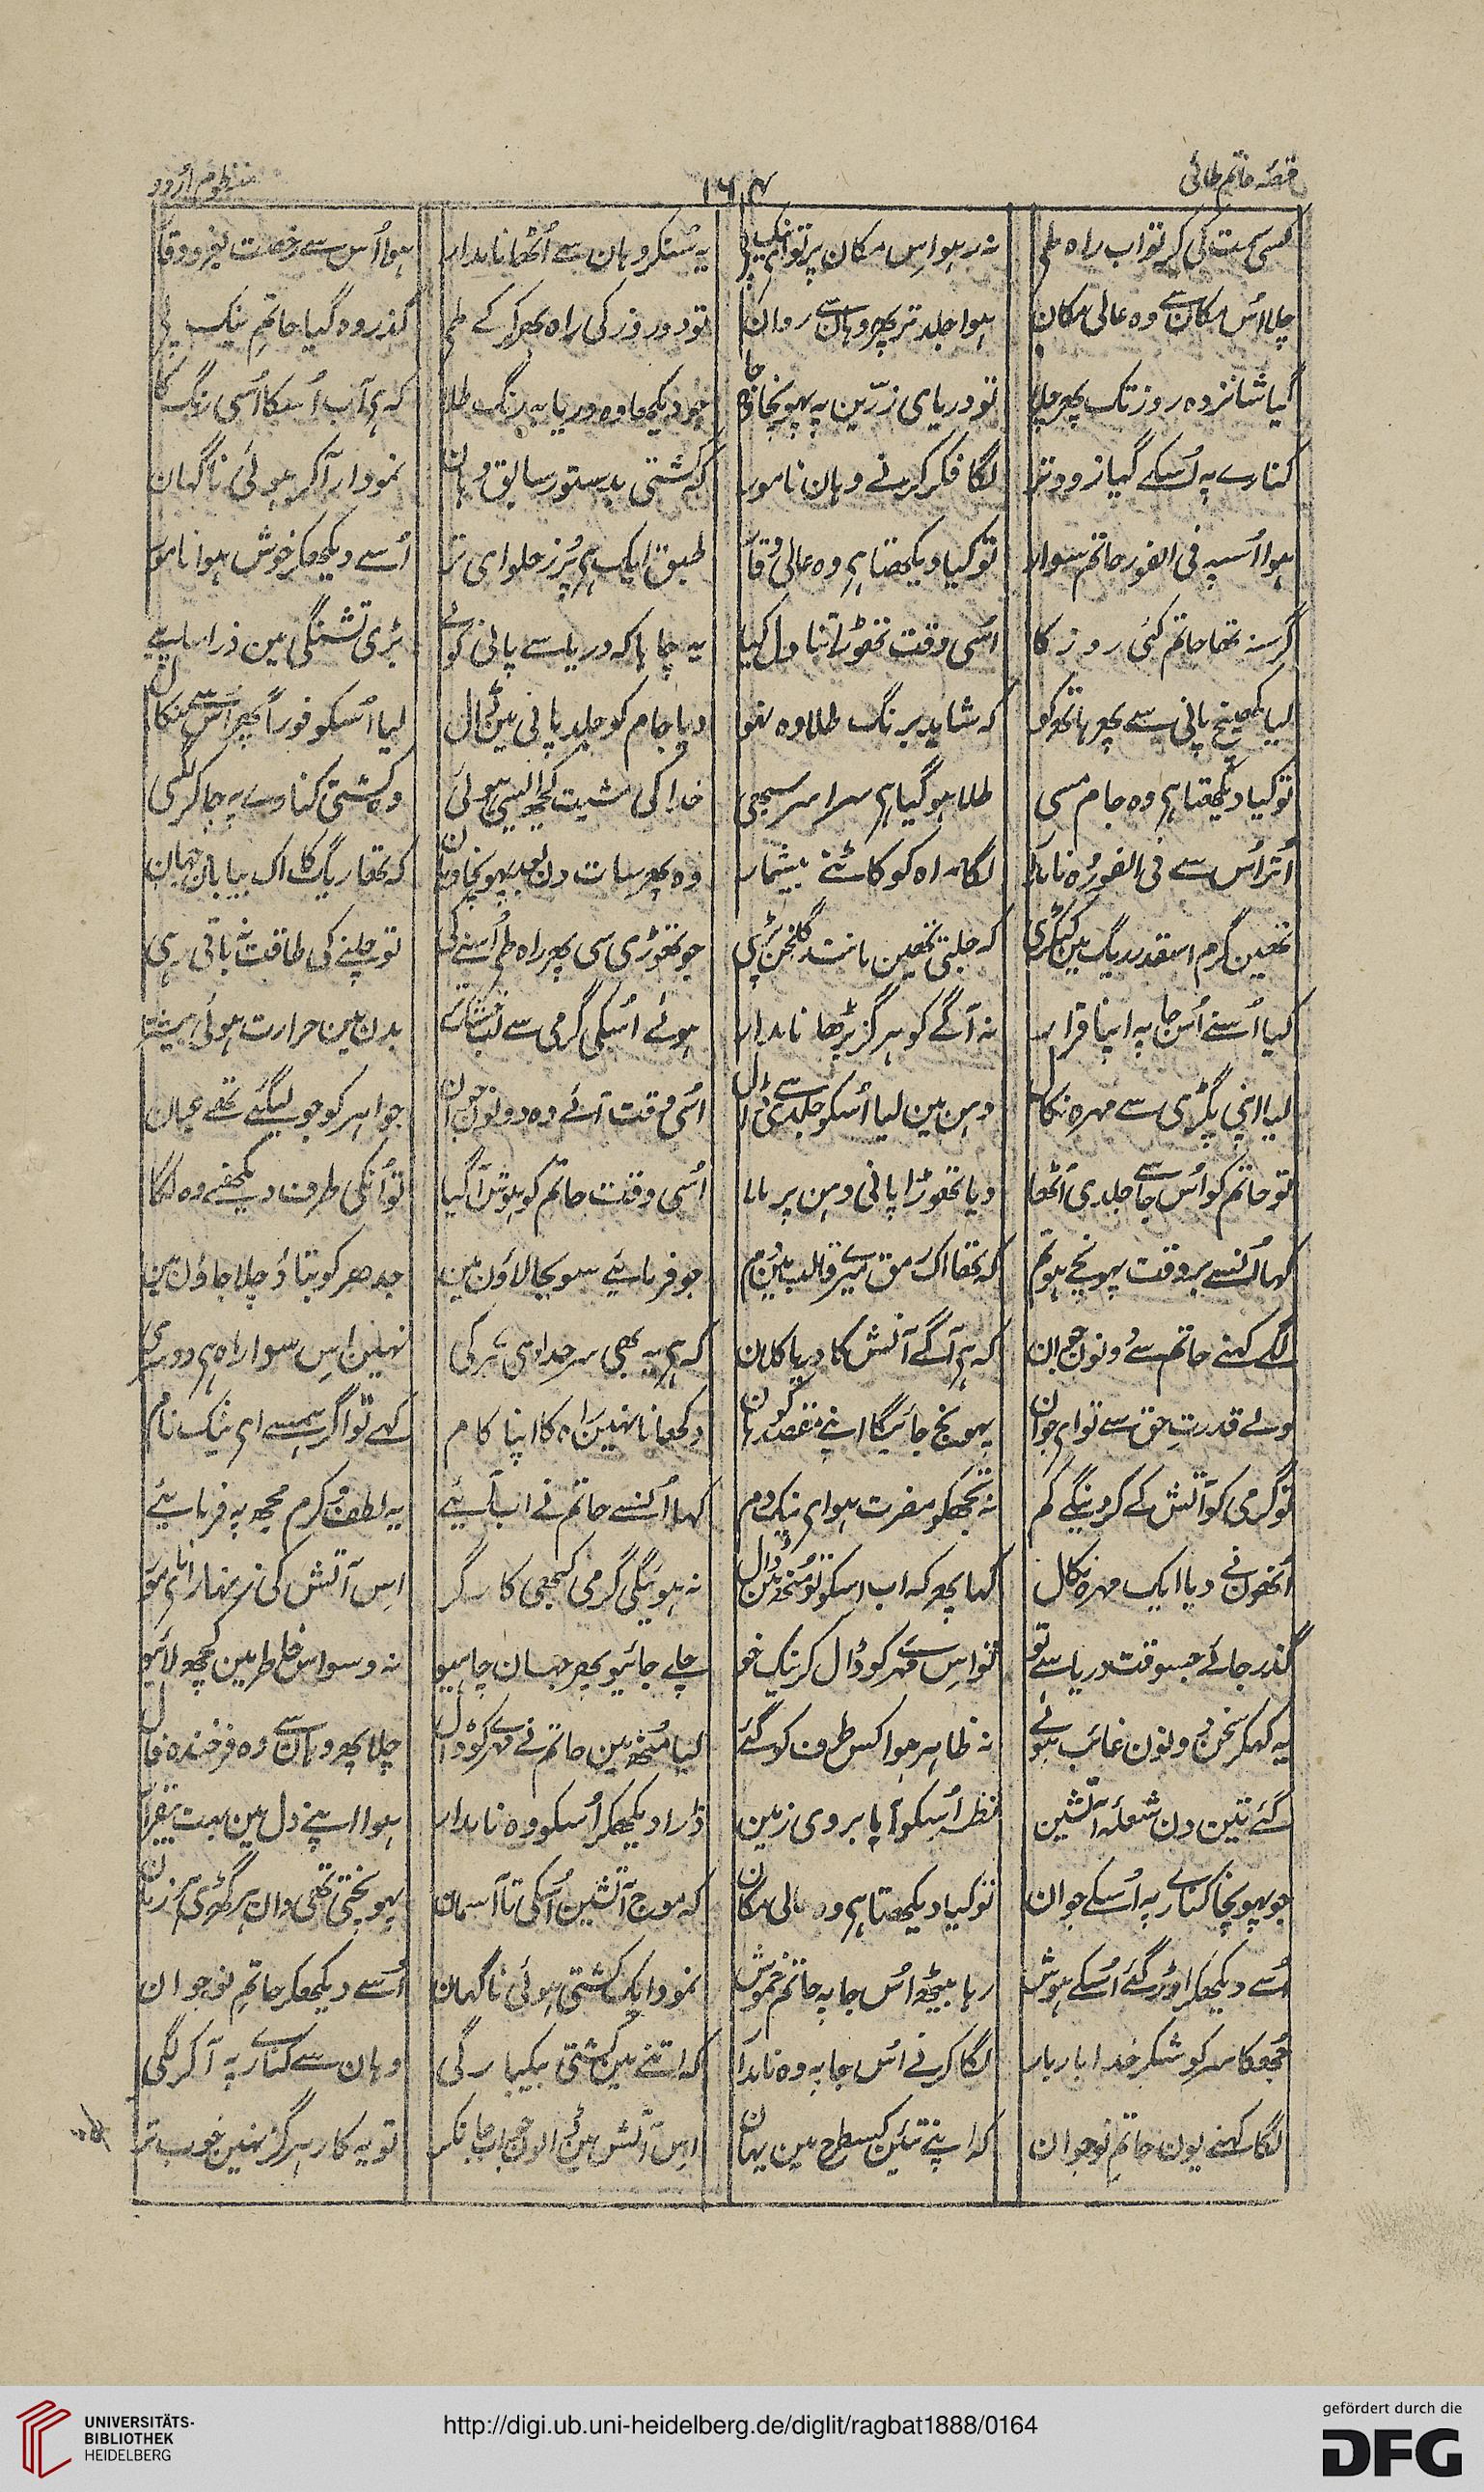 قصّہ حاتم طائی ۱۶۴ منظوم اردو
کسی سمت کی کر تو اب راہ طی نہ رہ ہو اِس مکان پر تو ای نیک پی یہ سُنکر وہان سے اُٹھا نامدار ہوا اُس سے رخصت بفرّ و وقار
چلا اُس مکان سے وہ عالی مکان ہوا جلد تر پھر وہان سے روان تو دو روز کی راہ پھر کر کے طی گذر وہ گیا حاتمِ نیک پی
گیا شانزدہ روز تک پھر چلا تو دریای زرّین پہ پہونچا جا جو دیکھا وہ دریا بہ رنگ طلا کہ ہی آب اُسکا اُسی رنگ کا
کنارے پہ اُسکے گیا زود تر لگا فکر کرنے وہان نامور کہ کشتی بدستور سابق وہان نمودار آکر ہوئی ناگہان
ہوا اُسپہ فی الفور حاتم سوار تو کیا دیکھتا ہی وہ عالی وقار طبق ایک ہی پُر ز حلوای تر اُسے دیکھکر خوش ہوا نامور
گرسنہ تھا حاتم کئی روز کا اُسی وقت تھوڑا تناول کیا یہ چاہا کہ دریا سے پانی کو لے بڑی تشنگی مین ذرا سا پیے
لیا کھینچ پانی سے پھر ہاتھ کو کہ شاید برنگ طلا وہ نہو دیا جام کو جلد پانی مین ڈال لیا اُسکو فوراً پھر اُس سے نکال
تو کیا دیکھتا ہی وہ جام مسی طلا ہو گیا ہی سراسر سبھی خدا کی مشیت کچھ ایسی ہوئی وہ کشتی کنارے پہ جا کر لگی
اُترا اُس سے فی الفور وہ نامدار لگا راہ کو کاٹنے بیشمار وہ پھر سات دن بعد پہونچا وہان کہ تھا ریگ کا اک بیابان جہان
تھین گرم اسقدر ریگ مین کنکری کہ جلتی تھین مانند گلخن پڑی جو تھوڑی سی پھر راہ طی اُسنے کی تو چلنے کی طاقت نہ باقی رہی
کیا اُسنے اُس جا پہ اپنا قرار نہ آگے کو ہرگز بڑھا نامدار ہوئے اُسکی گرمی سے لب خشک بدن مین حرارت ہوئی
لیا اپنی پگڑی سے مہرہ نکال دہن مین لیا اُسکو جلدی سے ڈال اُسی وقت آئے وہ دونون جوان جواہر کو جو لیگئے تھے عیان
تو حاتم کو اُس جا سے جلدی اُٹھا دیا تھوڑا پانی دہن پر مار اُسی وقت حاتم کو ہوش آگیا تو اُنکی طرف دیکھنے وہ لگا
کہا اُنسے بروقت پہونچے ہو تم کہ تھا اک رمق میرے قالب مین دم جو فرمایئے سو بجا لاؤن مین جدھر کو بتاؤ چلا جاؤن مین
لگے کہنے حاتم سے دونون جوان کہ ہی آگے آتش کا دریا کلان کہ ہی یہ بھی سرحد اسی شہر کی نہین اِس سوا راہ ہی دوسری
ولے قدرتِ حق سے تو ای جوان پہونچ جائیگا اپنے مقصد کو وہان دکھانا نہین راہ کا اپنا کام کہے تو اگر ہمسے ای نیک نام
تو گرمی کو آتش کے کر دینگے کم نہ تجھکو مضرت ہو ای نیکدم کہا اُنسے حاتم نے اب آیئے یہ لطف و کرم مجھ پہ فرمایئے
اُنھون نے دیا ایک مہرہ نکال کہا پھر کہ اب اسکو تو مُنھ مین ڈال نہ ہوئیگی گرمی کبھی کارگر اِس آتش کی زنہار ای نامور
گذر جائے جسوقت دریا سے تو تو اِس مہرے کو ڈال کر نیک خو چلے جائیو پھر جہان چاہیو نہ وسواس خاطر مین کچھ لائیو
یہ کہکر سخن دونون غائب ہوئے نہ ظاہر ہوا کس طرف کو گئے لیا مُنھ مین حاتم نے مہرے کو ڈال چلا پھر وہان سے وہ فرخندہ فال
گئے تین دن شعلۂ آتشین نظر اُسکو آیا بروی زمین ڈرا دیکھکر اُسکو وہ نامدار ہوا اپنے دل مین بہت بیقرار
جو پہونچا کنارے پہ اُسکے جوان تو کیا دیکھتا ہی وہ عالی مکان کہ موج آتشین اُسکی تا آسمان پہونچتی تھی وان ہر گھڑی ہر زمان
اُسے دیکھکر اوڑ گئے اُسکے ہوش رہا بیٹھ اُس جا پہ حاتم خموش نمود ایک کشتی ہوئی ناگہان اُسے دیکھکر حاتمِ نوجوان
جُھکا سر کو شکر خدا بار بار لگا کرنے اُس جا پہ وہ نامدار کہ اتنے مین کشتی بیکبارگی وہان سے کنارے پہ آکر لگی
لگا کہنے یون حاتمِ نوجوان کہ اپنے تئین کسطرح مین یہان اِس آتش مین ڈالون جب جانکر تو یہ کار ہرگز نہین خوب تر
UNIVERSITÄTS-
BIBLIOTHEK
HEIDELBERG
http://digi.ub.uni-heidelberg.de/diglit/ragbat1888/0164
gefördert durch die
DFG